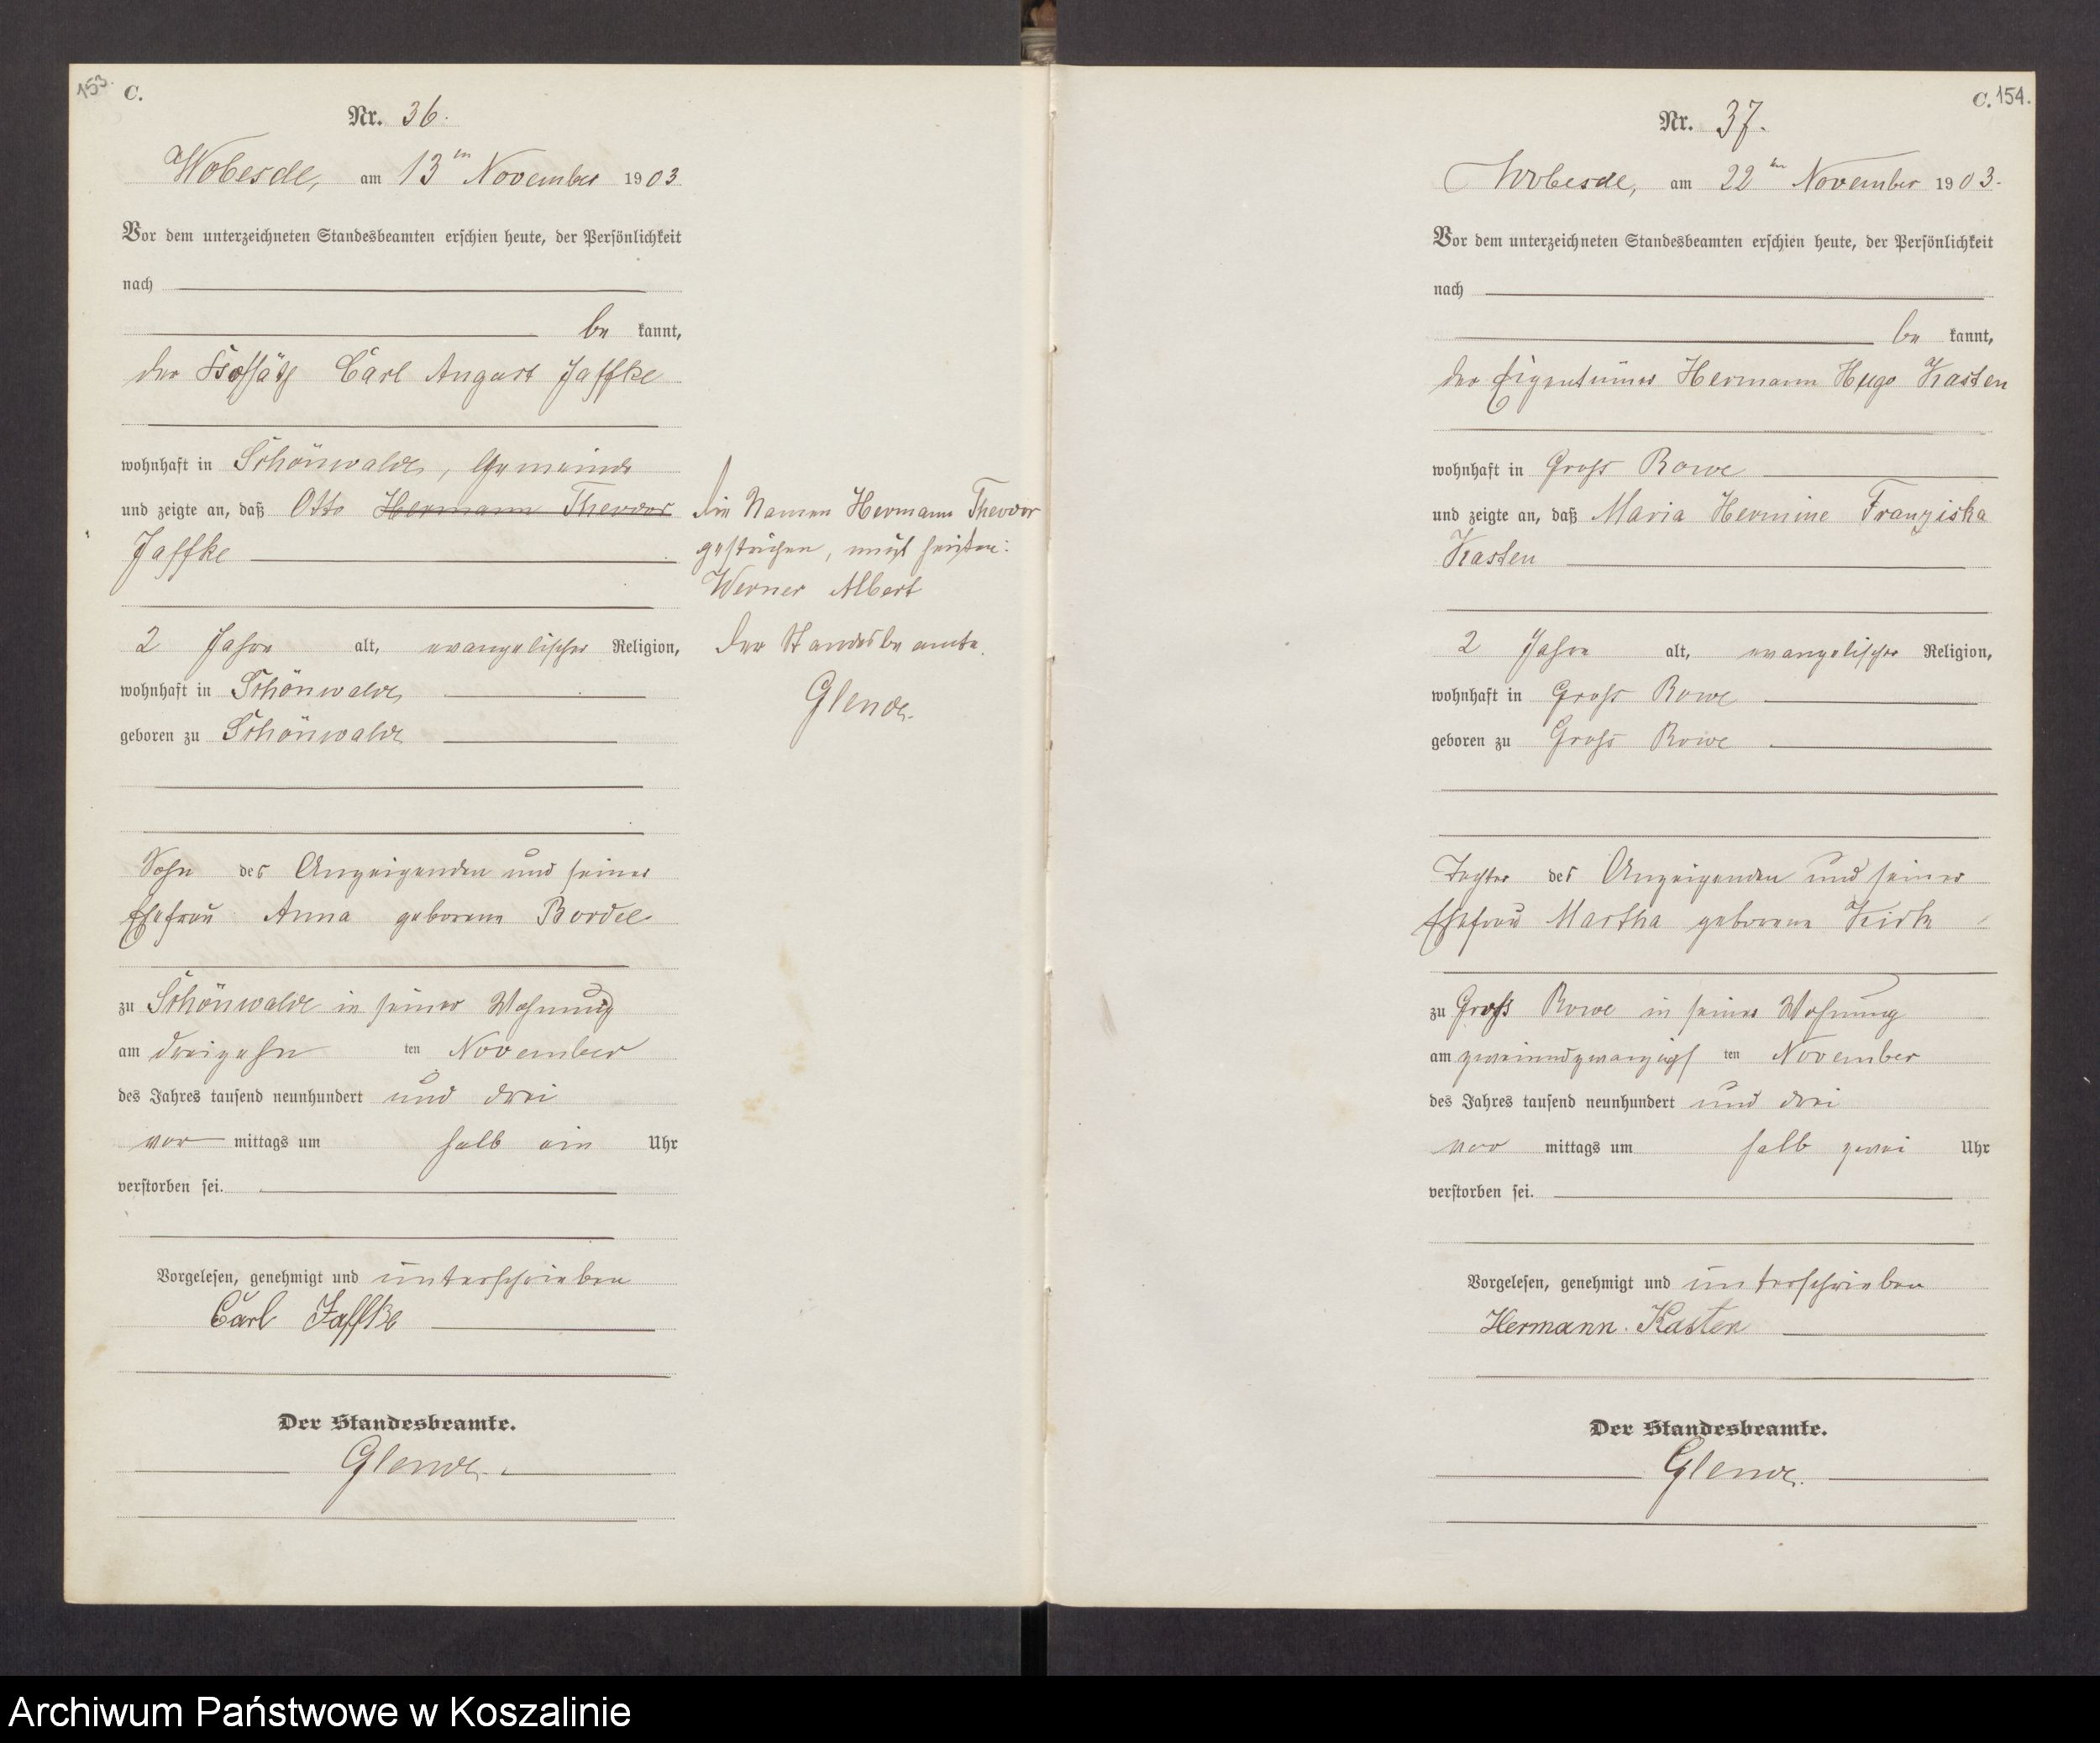 153.
C.
Nr. 36.
Wobesde, am 13ten November 1903
Vor dem unterzeichneten Standesbeamten erschien heute, der Persönlichkeit
nach
be kannt,
der Kossäth Carl August Jaffke
wohnhaft in Schönwalde, Gemeinde
und zeigte an, daß Otto Hermann Theodor
Jaffke
2 Jahre alt, evangelischer Religion,
wohnhaft in Schönwalde
geboren zu Schönwalde
Sohn des Anzeigenden und seiner
Ehefrau Anna geborene Bordel
zu Schönwalde in seiner Wohnung
am dreizehn ten November
des Jahres tausend neunhundert und drei
vor mittags um halb ein Uhr
verstorben sei.
Vorgelesen, genehmigt und unterschrieben
Carl Jaffke
Der Standesbeamte.
Glende.
Die Namen Hermann Theodor
gestrichen, muß heißen:
Werner Albert
Der Standesbeamte.
Glende.
C. 154.
Nr. 37.
Wobesde, am 22ten November 1903.
Vor dem unterzeichneten Standesbeamten erschien heute, der Persönlichkeit
nach
be kannt,
der Eigentümer Hermann Hugo Kasten
wohnhaft in Groß Rowe
und zeigte an, daß Maria Hermine Franziska
Kasten
2 Jahre alt, evangelischer Religion,
wohnhaft in Groß Rowe
geboren zu Groß Rowe
Tochter des Anzeigenden und seiner
Ehefrau Martha geborene
zu Groß Rowe in seiner Wohnung
am zweiundzwanzigs ten November
des Jahres tausend neunhundert und drei
vor mittags um halb zwei Uhr
verstorben sei.
Vorgelesen, genehmigt und unterschrieben
Hermann Kasten
Der Standesbeamte.
Glende.
Archiwum Państwowe w Koszalinie